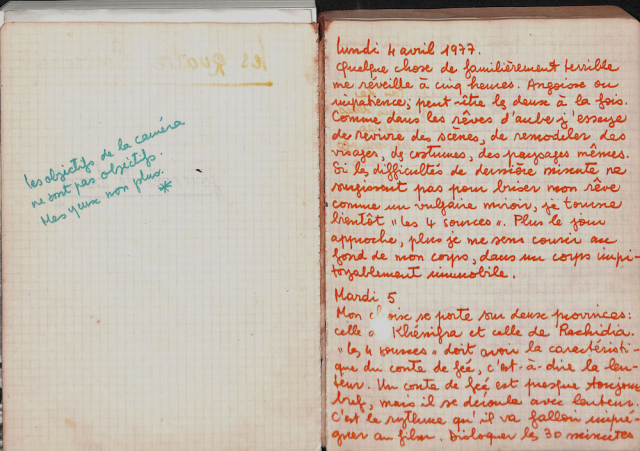 les quatre
les objectifs de la caméra
ne sont pas objectifs.
Mes yeux non plus.
*
lundi 4 avril 1977.
Quelque chose de familièrement terrible
me réveille à cinq heures. Angoisse ou
impatience; peut-être les deux à la fois.
Comme dans les rêves d'aube j'essaye
de revivre des scènes, de remodeler des
visages, des costumes, des paysages mêmes.
Si les difficultés de dernière minute ne
surgissent pas pour briser mon rêve
comme un vulgaire miroir, je tourne
bientôt "les 4 sources". Plus le jour
approche, plus je me sens courir au
fond de mon corps, dans un corps impi-
toyablement immobile.
Mardi 5
Mon choix se porte sur deux provinces:
celle de Khénifra et celle de Rachidia.
"les 4 sources" doit avoir la caractéristi-
que du conte de fée, c'est-à-dire la len-
teur. Un conte de fée est presque toujours
bref, mais il se déroule avec lenteur.
C'est le rythme qu'il va falloir impré-
gner au film. Dialoguer les 30 minutes